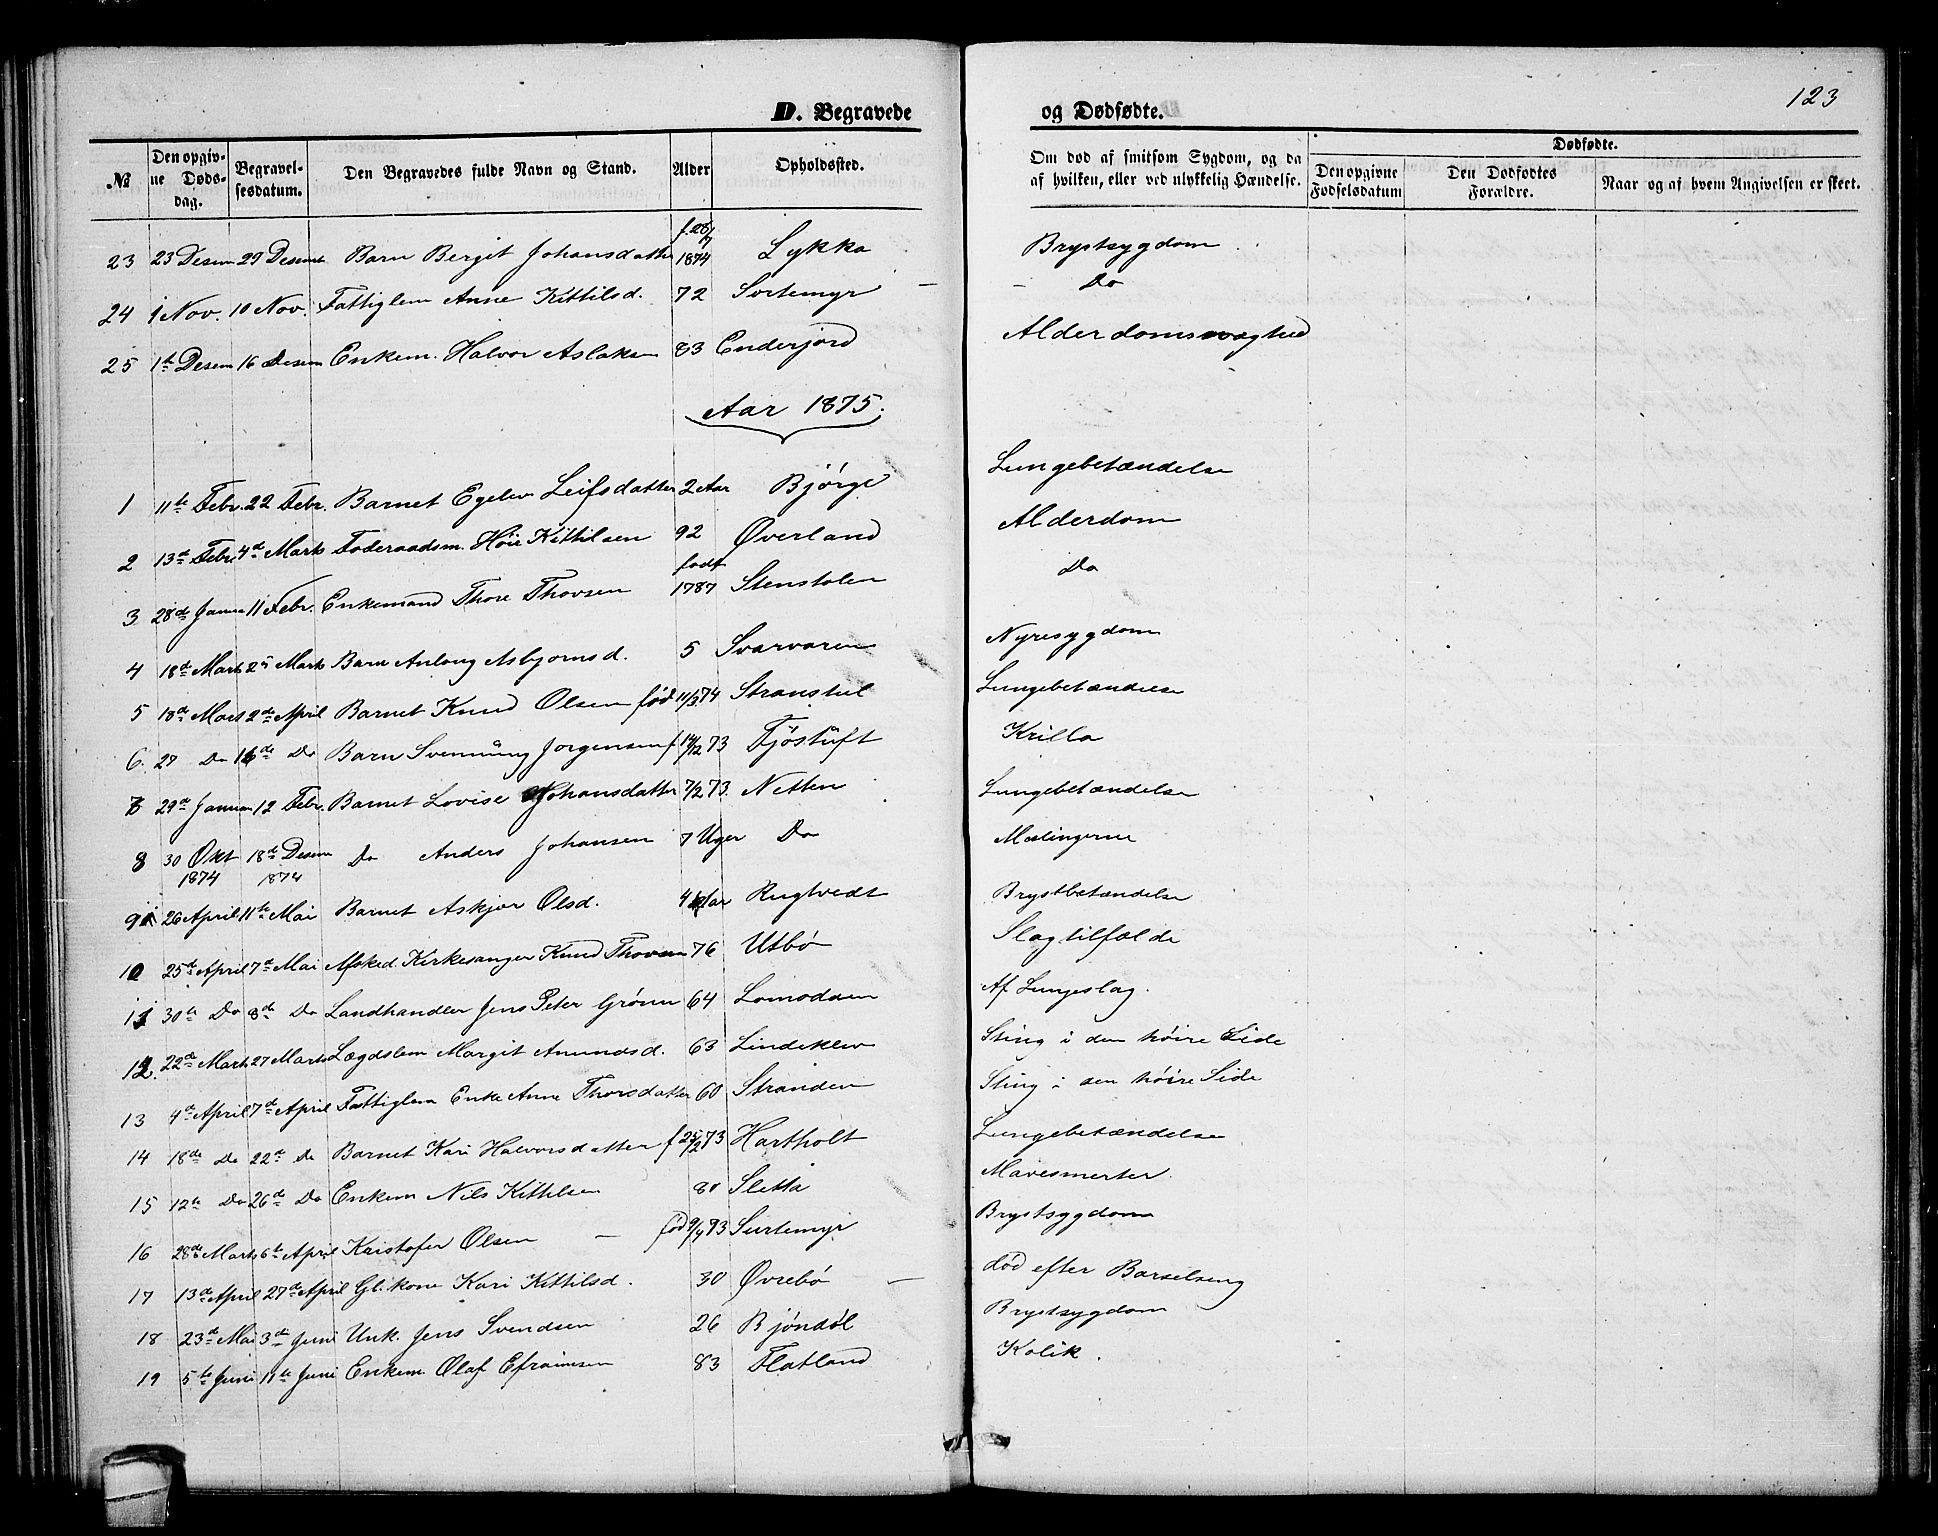 123
D. Begravede og Dødfødte.
№ Den opgivne Dødsdag. Begravelsesdatum. Den Begravedes fulde Navn og Stand. Alder Opholdssted. Om død af smitsom Sygdom, og da af hvilken, eller ved ulykkelig Hændelse. Dødfødte. Den opgivne Fødselsdatum Den Dødfødtes Forældre. Naar og af hvem Angivelsen er skeet.
23 23 Desem 29 Desem Barn Bergit Johansdatter f. 26/7 1874 Lykka Brystsygdom
24 1 Nov. 10 Nov. Fattiglem Anne Kittilsd. 72 Sortemyr — - Do
25 1te Desem 16 Desem Enkem. Halvor Aslaksen 83 Enderjord Alderdomsvaghed
Aar 1875.
1 11te Febr. 22 Febr. Barnet Egelev Leifsdatter 2 Aar Bjørge Lungebetændelse
2 13de Febr 4de Marts Foderaadsm. Høie Kittilsen 92 Øverland Alderdom
3 28de Janua 11 Febr. Enkemand Thore Thovsen født 1787 Stenstolen Do
4 18de Marts 25 Marts Barn Anlaug Asbjørnsd. 5 Svarvaren Nyresygdom
5 18de Mars 2de April Barnet Knud Olsen fød 11/3 74 Stranstul Lungebetændelse
6. 27 Do 16de Do Barn Svennung Jorgensen f 14/2 73 Tjøstuft Krilla
7 29de Januar 12 Febr. Barnet Lovise Johansdatter 7/2 73. Netten Lungebetændelse
8 30 Okt 1874 18de Desem 1874 Do Anders Johansen 7 Uger Do Mæslingerne
9 26 April 11te Mai Barnet Askjør Olsd. 4 Aar Rugtvedt Brystbetændelse
10 25de April 7de Mai Afsked. Kirkesanger Knud Thovsen 76 Utbø Slagtilfælde
11 30te Do 8de Do Landhandler Jens Peter Grønn 64 Lomodden Af Lungeslag.
12. 22de Marts 27 Marts Lægdslem Margit Anundsd. 63 Lindeklev Sting i den høire Side
13 4de April 7de April Fattiglem Enke Anne Thorsdatter 60 Stranden Sting i den høire Side
14 18de Do 22de Do Barnet Kari Halvorsdatter f 25/2 73 Hartholt Lungebetændelse
15 12te Do 26de Do Enkem Nils Kittilsen 80 Sletta Mavesmerter.
16 28de Marts 6te April Kristofer Olsen — fød 9/4 73 Surtemyr Brystsygdom
17 13de April 27de April Gl. kone Kari Kittilsd. 30 Øvrebø — død efter Barselseng
18 23de Mai 3de Juni Unk. Jens Svendsen 26 Bjøndøl Brystsygdom
19 5te Juni 11te Juni Enkem Olaf Efraimsen 83 Flatland Kolik.